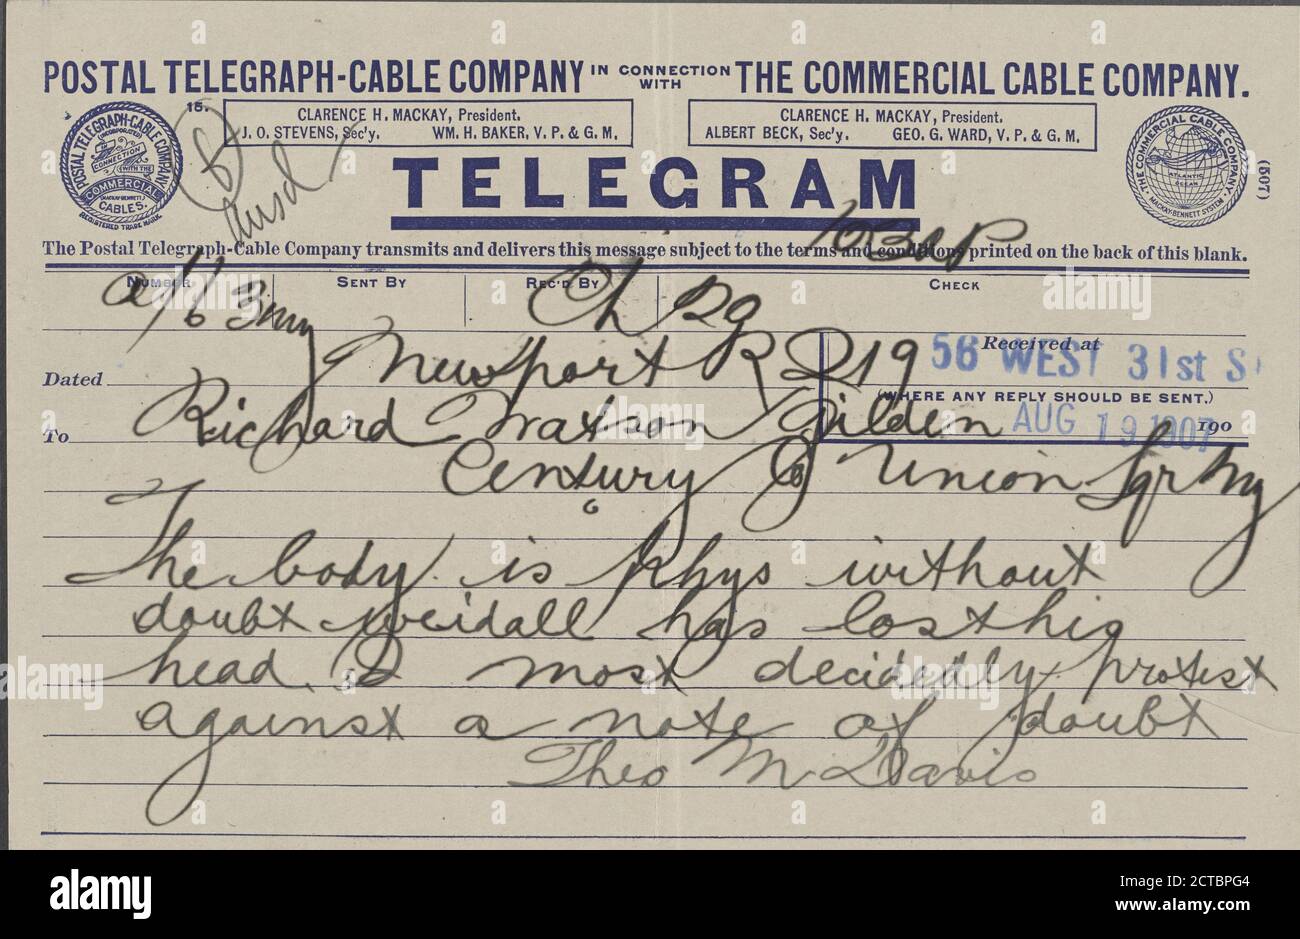 POSTAL TELEGRAPH-CABLE COMPANY IN CONNECTION WITH THE COMMERCIAL CABLE COMPANY.
15.
CLARENCE H. MACKAY, President.
J. O. STEVENS, Sec'y. WM. H. BAKER, V. P. & G. M.
CLARENCE H. MACKAY, President.
ALBERT BECK, Sec'y. GEO. G. WARD, V. P. & G. M.
POSTAL TELEGRAPH-CABLE COMPANY
(INCORPORATED)
IN CONNECTION WITH THE
COMMERCIAL
(MACKAY-BENNETT)
CABLES.
REGISTERED TRADE MARK.
THE COMMERCIAL CABLE COMPANY
ATLANTIC OCEAN
MACKAY-BENNETT SYSTEM
(507)
TELEGRAM
The Postal Telegraph-Cable Company transmits and delivers this message subject to the terms and conditions printed on the back of this blank.
NUMBER SENT BY REC'D BY CHECK
Ch
Received at 56 WEST 31st S
Dated Newport R I 19
(WHERE ANY REPLY SHOULD BE SENT.)
AUG 19 1907 190
To Richard Watson Gilden
Century Co Union Sqr Ny
The body is Khys without
doubt weidall has lost his
head. I most decidedly protest
against a note of doubt
Theo M Davis
alamy
alamy
Image ID: 2CTBPG4
www.alamy.com